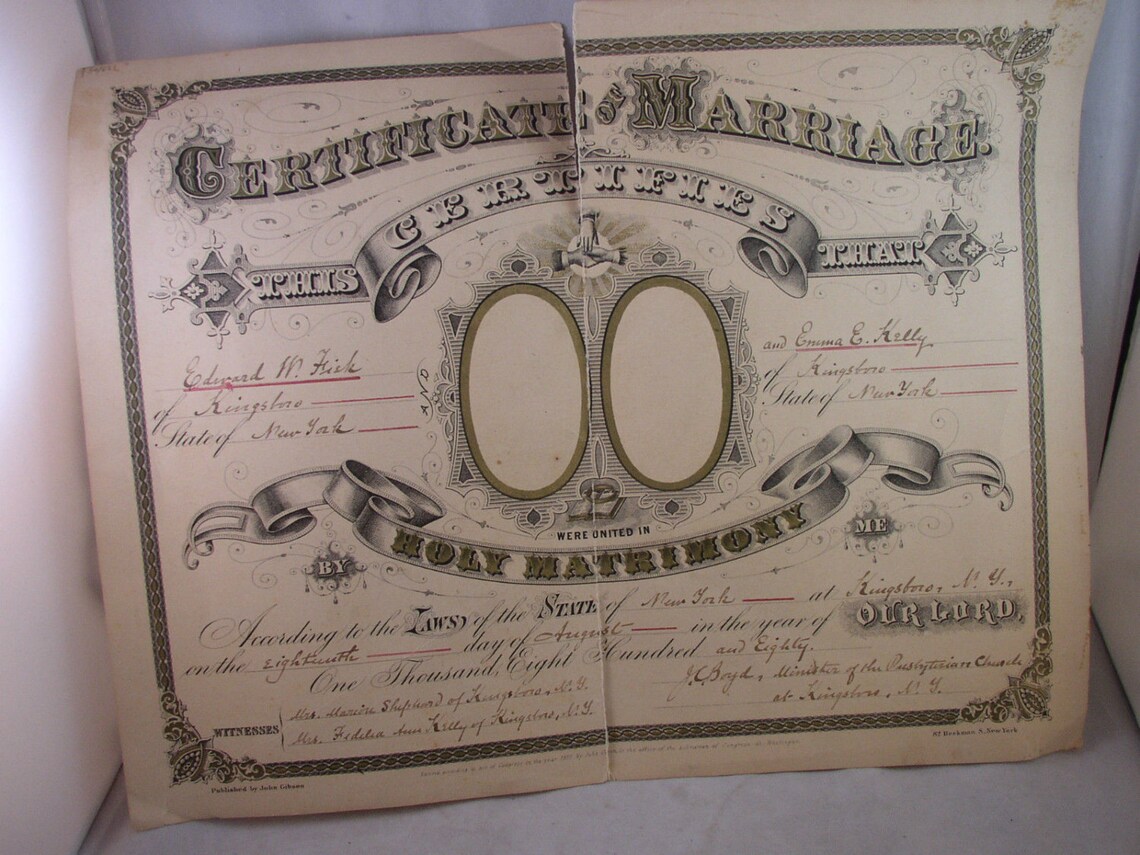 CERTIFICATE OF MARRIAGE.
THIS CERTIFIES THAT
Edward W. Fick
of Kingsboro
State of New York
AND
and Emma E. Kelly
of Kingsboro
State of New York
WERE UNITED IN
HOLY MATRIMONY
BY ME
According to the LAWS, of the STATE of New York at Kingsboro, N. Y.,
on the Eighteenth day of August in the year of OUR LORD,
One Thousand, Eight Hundred and Eighty.
J. C. Boyd, Minister of the Presbyterian Church
at Kingsboro, N. Y.
WITNESSES
Mrs. Marion Shepherd of Kingsboro, N. Y.
Mrs. Fidelia Ann Kelly of Kingsboro, N. Y.
Published by John Gibson
82 Beekman S. New York